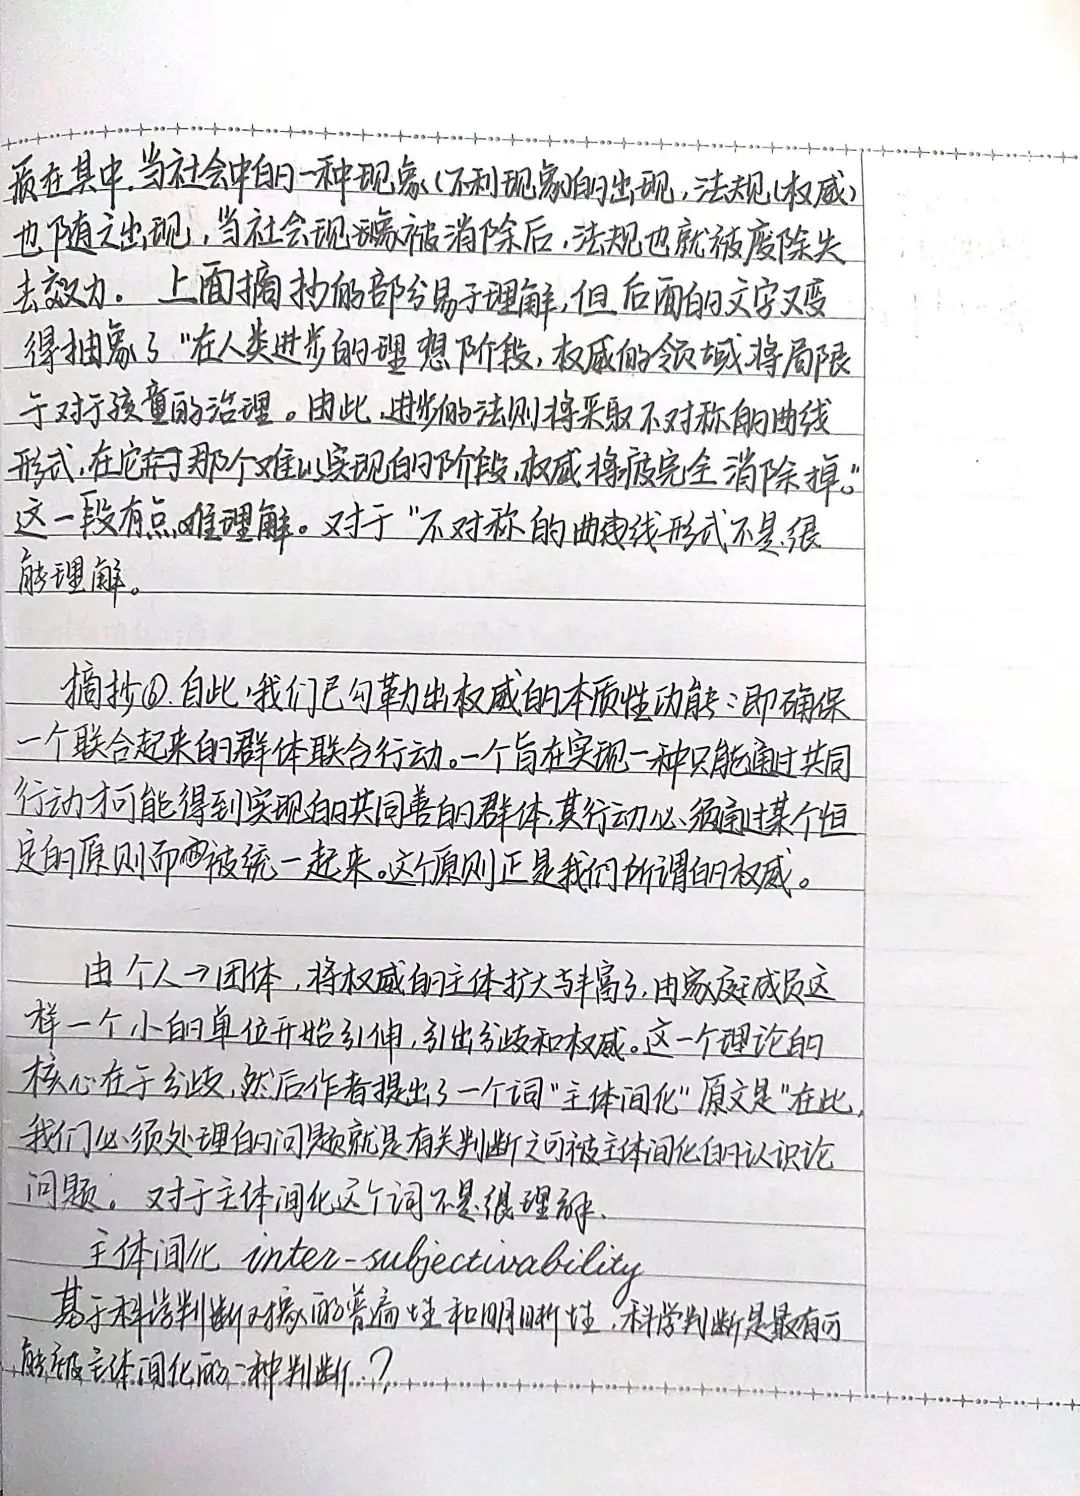 质在其中。当社会中的一种现象(不利现象)的出现，法规(权威)
也随之出现，当社会现象被消除后，法规也就被废除失
去效力。上面摘抄的部分易于理解，但后面的文字又变
得抽象了"在人类进步的理想阶段，权威的领域将局限
于对于孩童的治理。由此，进步的法则将采取不对称的曲线
形式，在它那个难以实现的阶段，权威将被完全消除掉。"
这一段有点难理解。对于"不对称的曲线形式不是很
能理解。
摘抄⑥.自此，我们已勾勒出权威的本质性功能：即确保
一个联合起来的群体联合行动。一个旨在实现一种只能通过共同
行动才可能得到实现的共同善的群体，其行动必须通过某个恒
定的原则而被统一起来。这个原则正是我们所谓的权威。
由个人→团体，将权威的主体扩大与丰富了，由家庭成员这
样一个小的单位开始引伸，引出分歧和权威。这一个理论的
核心在于分歧，然后作者提出了一个词"主体间化"原文是"在此，
我们必须处理的问题就是有关判断之可被主体间化的认识论
问题。对于主体间化这个词不是很理解.
主体间化 inter-subjectivability
基于科学判断对象的普遍性和明晰性，科学判断是最有可
能被主体间化的一种判断.？